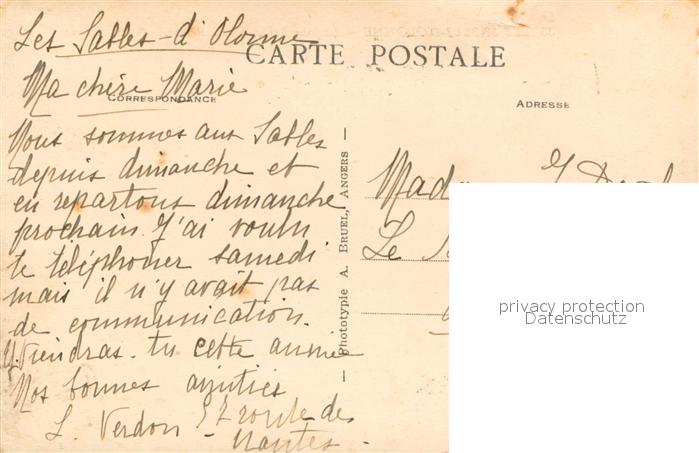 Les Sables-d'Olonne
CARTE POSTALE
Ma chère Marie
CORRESPONDANCE
ADRESSE
Nous sommes aux Sables
depuis dimanche et
en repartons dimanche
prochain. J'ai voulu
te téléphoner samedi
mais il n'y avait pas
de communication.
Viendras-tu cette année
Nos bonnes amitiés
L. Verdon 52 route de
Nantes
— Phototypie A. BRUEL, ANGERS —
Madame
Le
privacy protection
Datenschutz